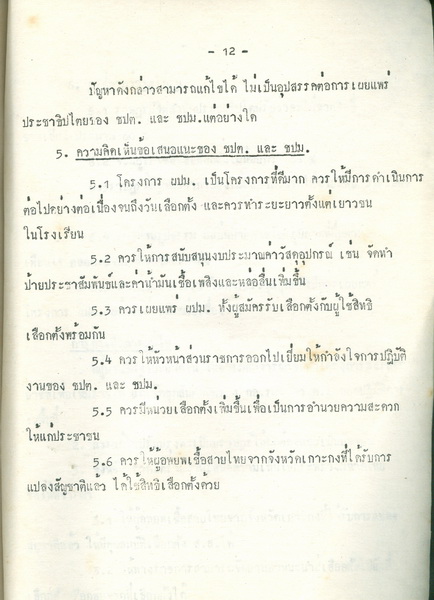 - 12 -
ปัญหาดังกล่าวสามารถแก้ไขได้ ไม่เป็นอุปสรรคต่อการเผยแพร่
ประชาธิปไตยของ ชปต. และ ชปม.แต่อย่างใด
5. ความคิดเห็นข้อเสนอแนะของ ชปต. และ ชปม.
5.1 โครงการ ผปม. เป็นโครงการที่ดีมาก ควรให้มีการดำเนินการ
ต่อไปอย่างต่อเนื่องจนถึงวันเลือกตั้ง และควรทำระยะยาวตั้งแต่เยาวชน
ในโรงเรียน
5.2 ควรให้การสนับสนุนงบประมาณค่าวัสดุอุปกรณ์ เช่น จัดทำ
ป้ายประชาสัมพันธ์และค่าน้ำมันเชื้อเพลิงและหล่อลื่นเพิ่มขึ้น
5.3 ควรเผยแพร่ ผปม. ทั้งผู้สมัครรับเลือกตั้งกับผู้ใช้สิทธิ
เลือกตั้งพร้อมกัน
5.4 ควรให้หัวหน้าส่วนราชการออกไปเยี่ยมให้กำลังใจการปฏิบัติ
งานของ ชปต. และ ชปม.
5.5 ควรมีหน่วยเลือกตั้งเพิ่มขึ้นเพื่อเป็นการอำนวยความสะดวก
ให้แก่ประชาชน
5.6 ควรให้ผู้อพยพเชื้อสายไทยจากจังหวัดเกาะกงที่ได้รับการ
แปลงสัญชาติแล้ว ได้ใช้สิทธิเลือกตั้งด้วย